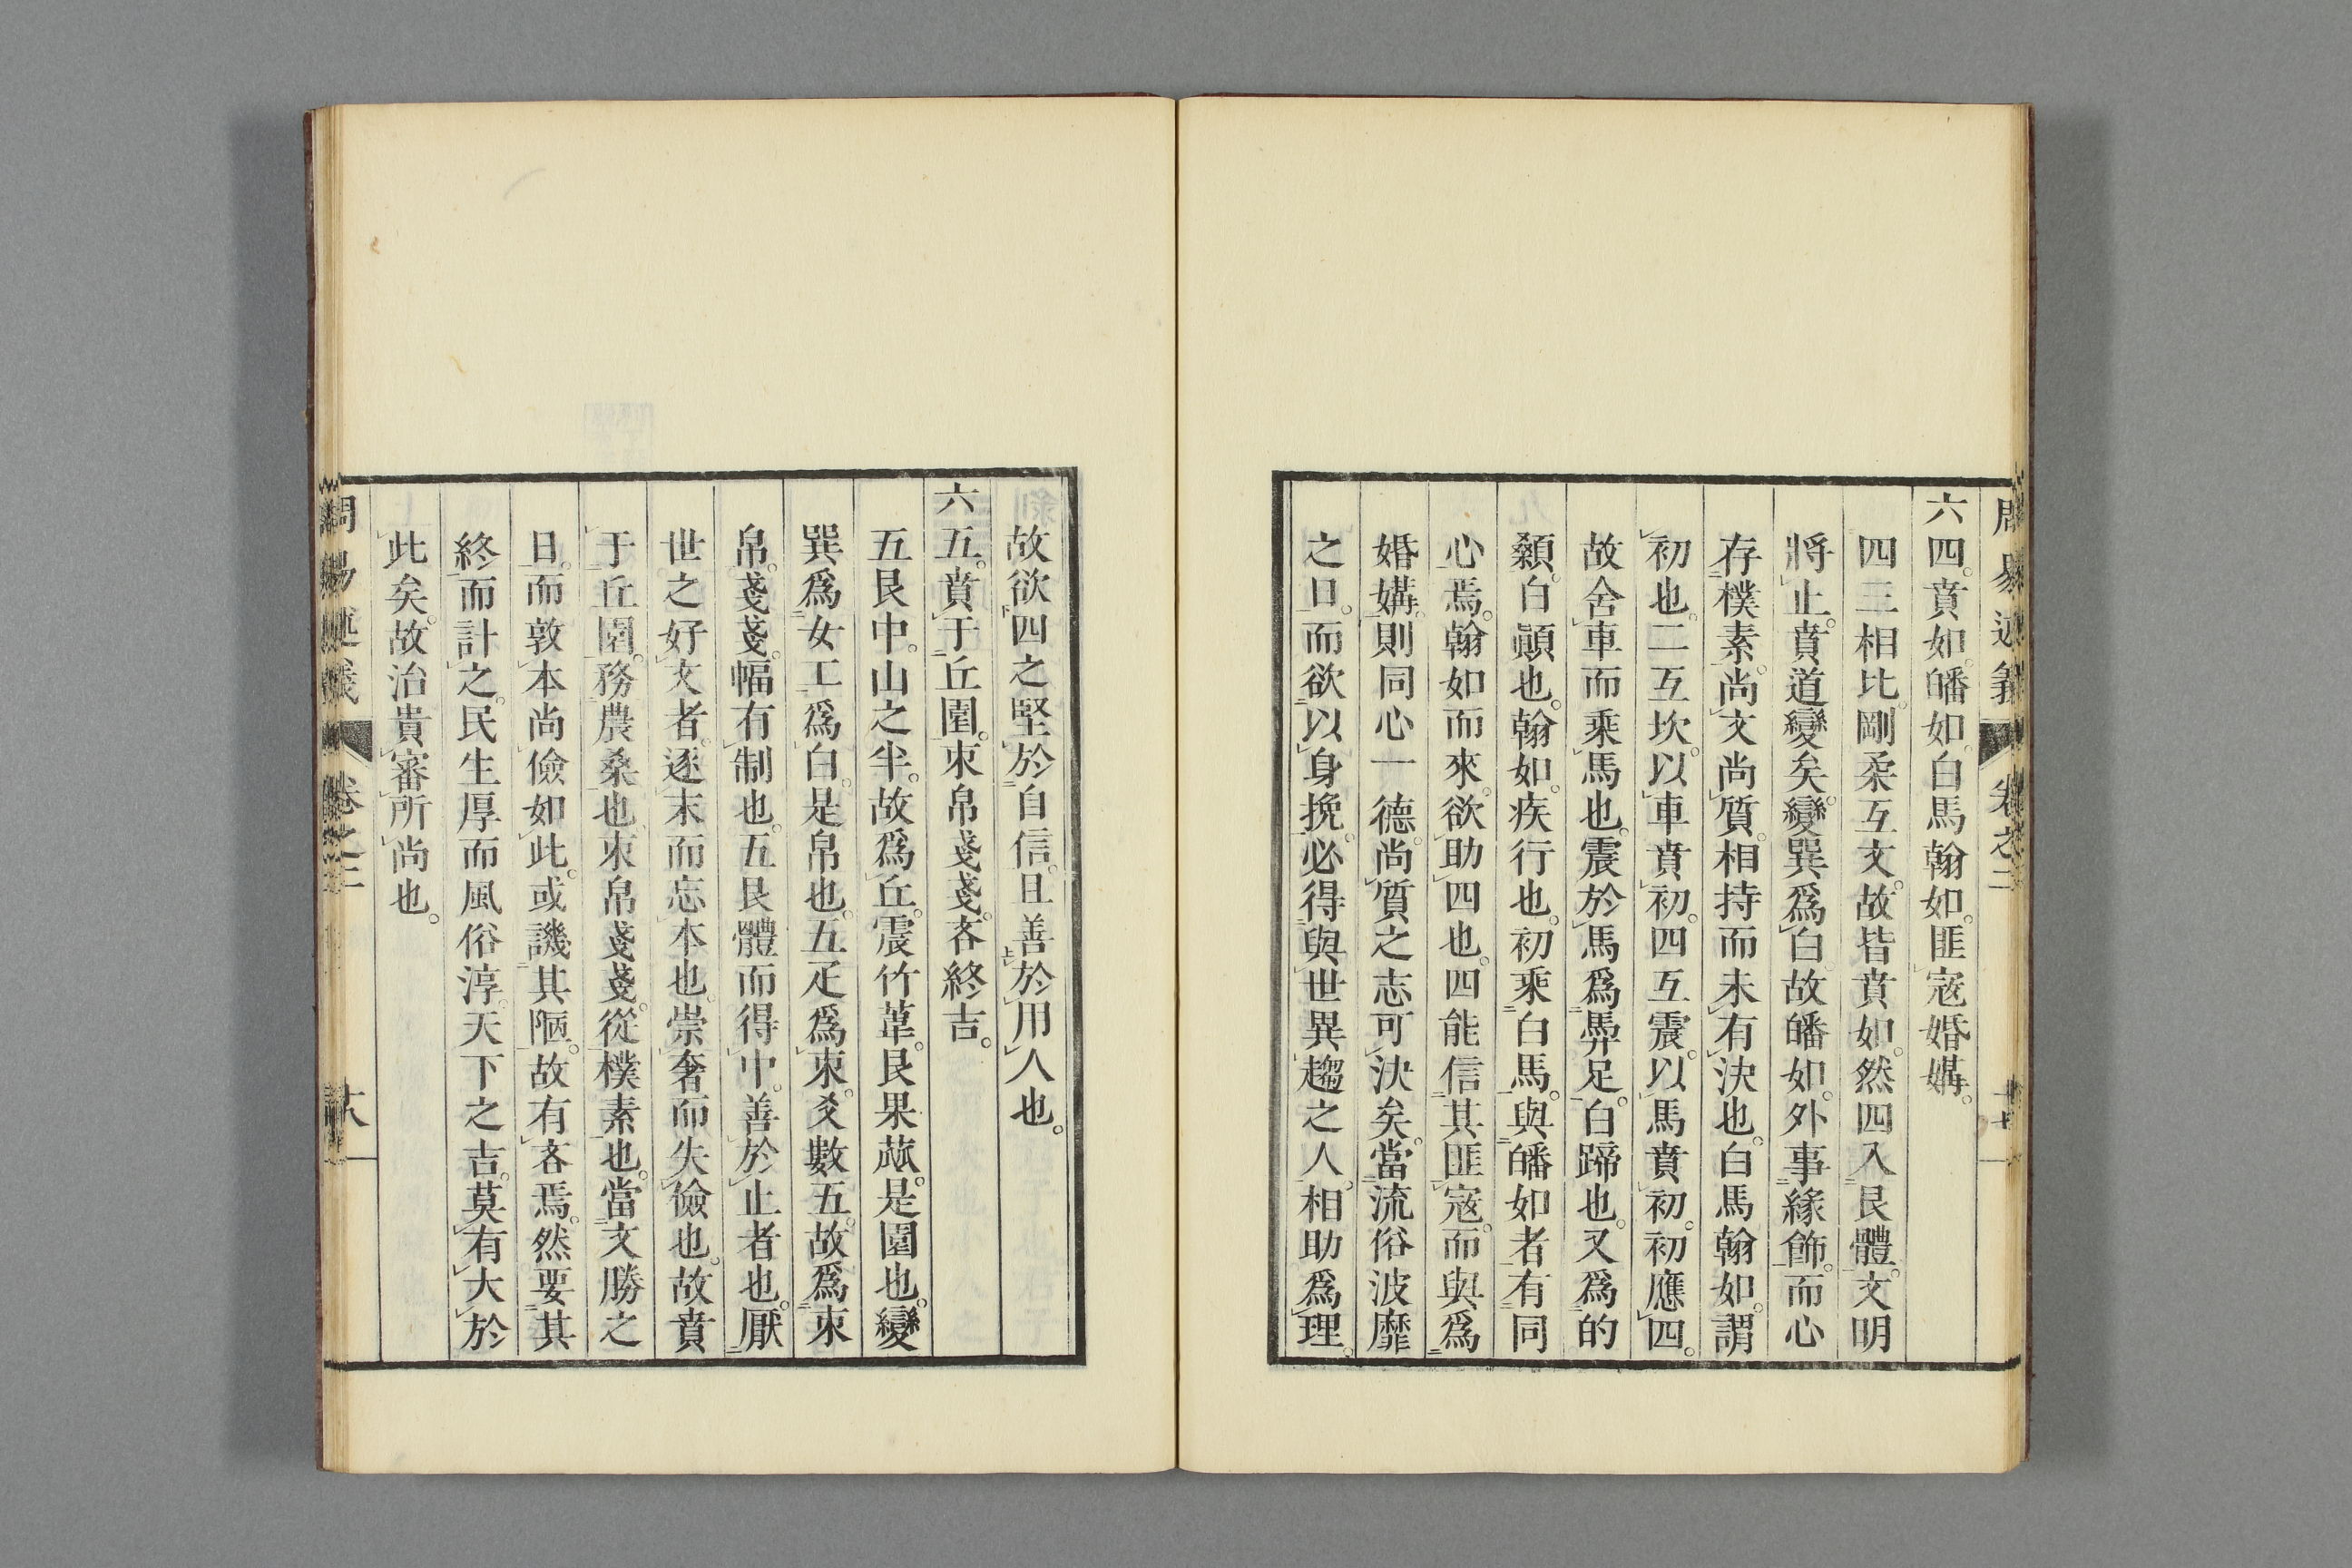 六四。賁如。皤如。白馬翰如。匪寇婚媾。
四三相比。剛柔互文。故皆賁如。然四入艮體。文明
將止。賁道變矣。變巽爲白。故皤如。外事緣飾。而心
存樸素。尚文尚質。相持而未有決也。白馬翰如。謂
初也。二互坎。以車賁初。四互震。以馬賁初。初應四。
故舍車而乘馬也。震於馬爲馵足。白蹄也。又爲的
顙。白顚也。翰如。疾行也。初乘白馬。與皤如者有同
心焉。翰如而來。欲助四也。四能信其匪寇。而與爲
婚媾。則同心一德。尚質之志可決矣。當流俗波靡
之日。而欲以身挽。必得與世異趨之人。相助爲理。
故欲四之堅於自信。且善於用人也。
六五。賁于丘園。束帛戔戔。吝終吉。
五艮中。山之半。故爲丘。震竹葦。艮果蓏。是園也。變
巽爲女工。爲白。是帛也。五疋爲束。爻數五。故爲束
帛。戔戔。幅有制也。五艮體而得中。善於止者也。厭
世之好文者。逐末而忘本也。崇奢而失儉也。故賁
于丘園。務農桑也。束帛戔戔。從樸素也。當文勝之
日。而敦本尚儉如此。或譏其陋。故有吝焉。然要其
終而計之。民生厚而風俗淳。天下之吉。莫有大於
此矣。故治貴審所尚也。